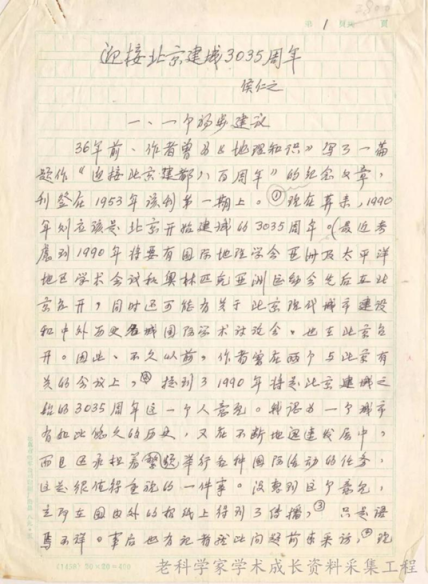 第 1 页
迎接北京建城3035周年
侯仁之
一、一个初步建议
36年前、作者曾为《地理知识》写了一篇
题作“迎接北京建都八百周年”的纪念文章,
刊登在1953年该刊第一期上。①现在算来,1990
年则应该是北京开始建城的3035周年。(最近考
虑到1990年将要有国际地理学会亚洲及太平洋
地区学术会议和奥林匹克亚洲运动会先后在北
京召开,同时还可能有关于北京现代城市建设
和中外历史名城国际学术讨论会,也在北京召
开。因此、不久以前,作者曾在两个与北京有
关的会议上,②提到了1990年将是北京建城之
始的3035周年这一个人意见。我认为一个城市
有如此悠久的历史,又在不断地迅速发展中,
而且还承担着举行各种国际活动的任务,
这是很值得重视的一件事。没想到这个意见,
立即在国内外的报纸上得到了传播③只是语
焉不详。事后也有记者就此问题前来采访,④现
(1458) 20×20=400
老科学家学术成长资料采集工程